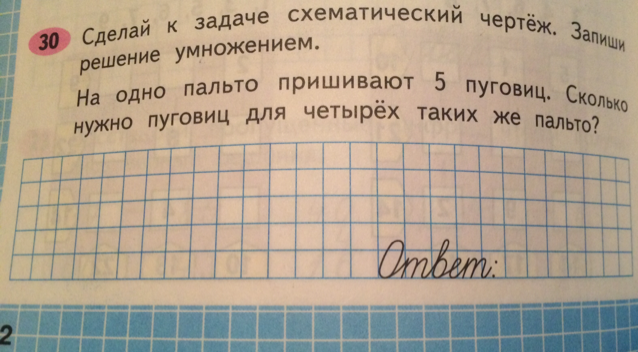 30 Сделай к задаче схематический чертёж. Запиши
решение умножением.
На одно пальто пришивают 5 пуговиц. Сколько
нужно пуговиц для четырёх таких же пальто?
Ответ:
2